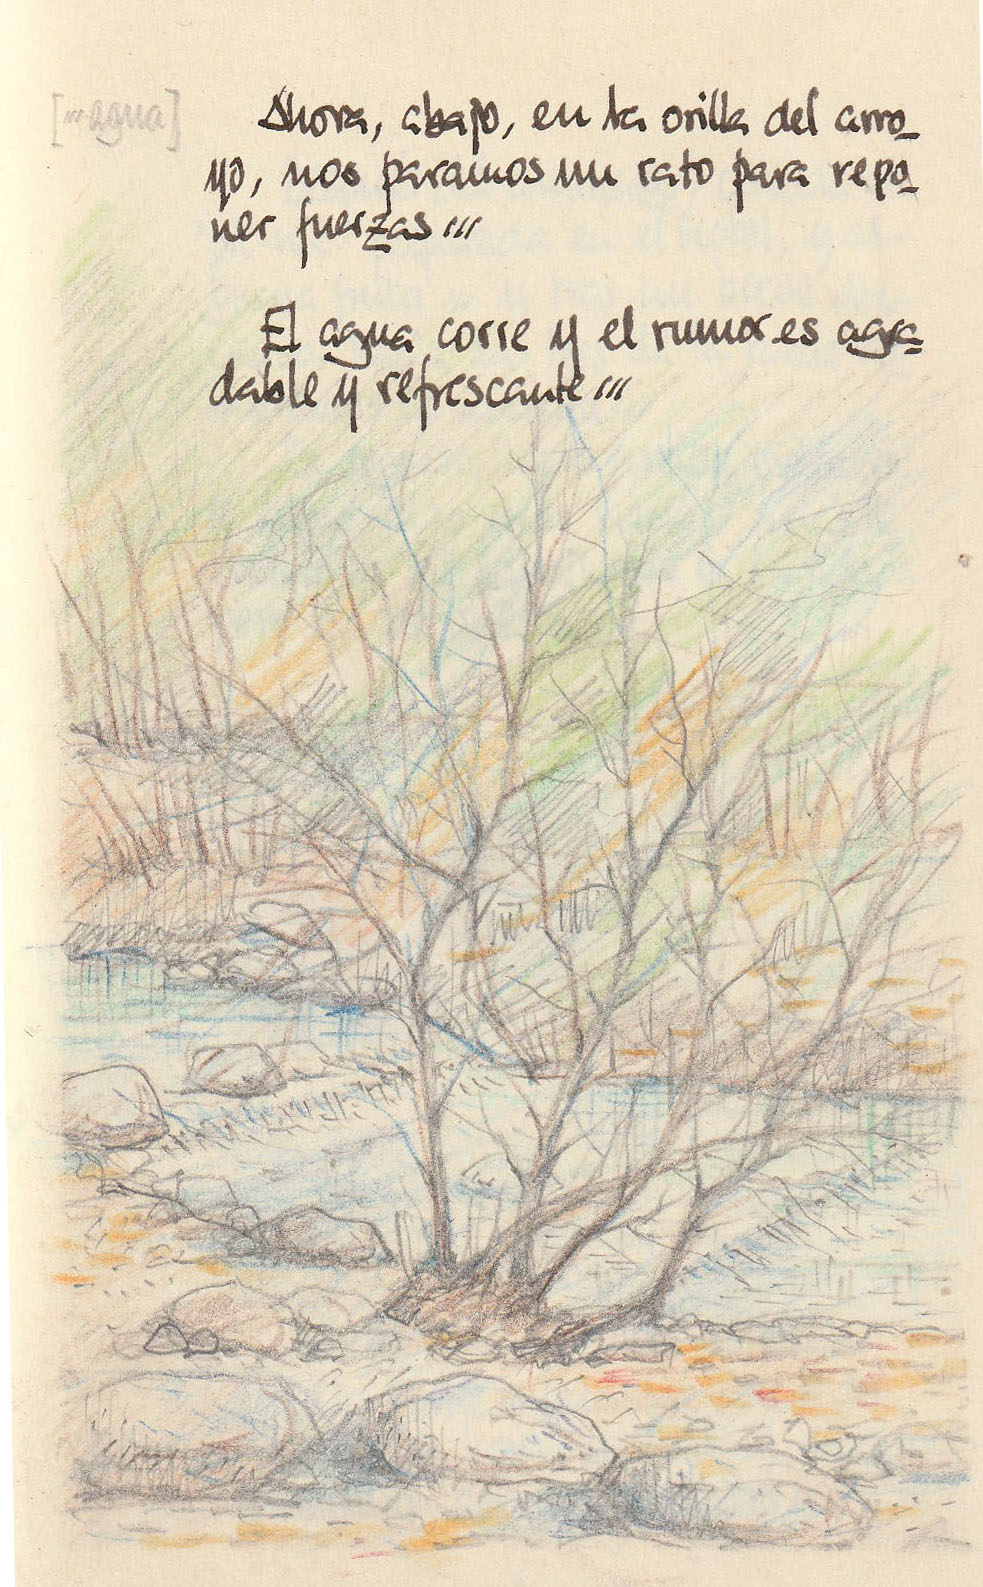 [... agua]
Ahora, abajo, en la orilla del arro-
yo, nos paramos un rato para repo-
ner fuerzas...
El agua corre y el rumor es agra-
dable y refrescante...